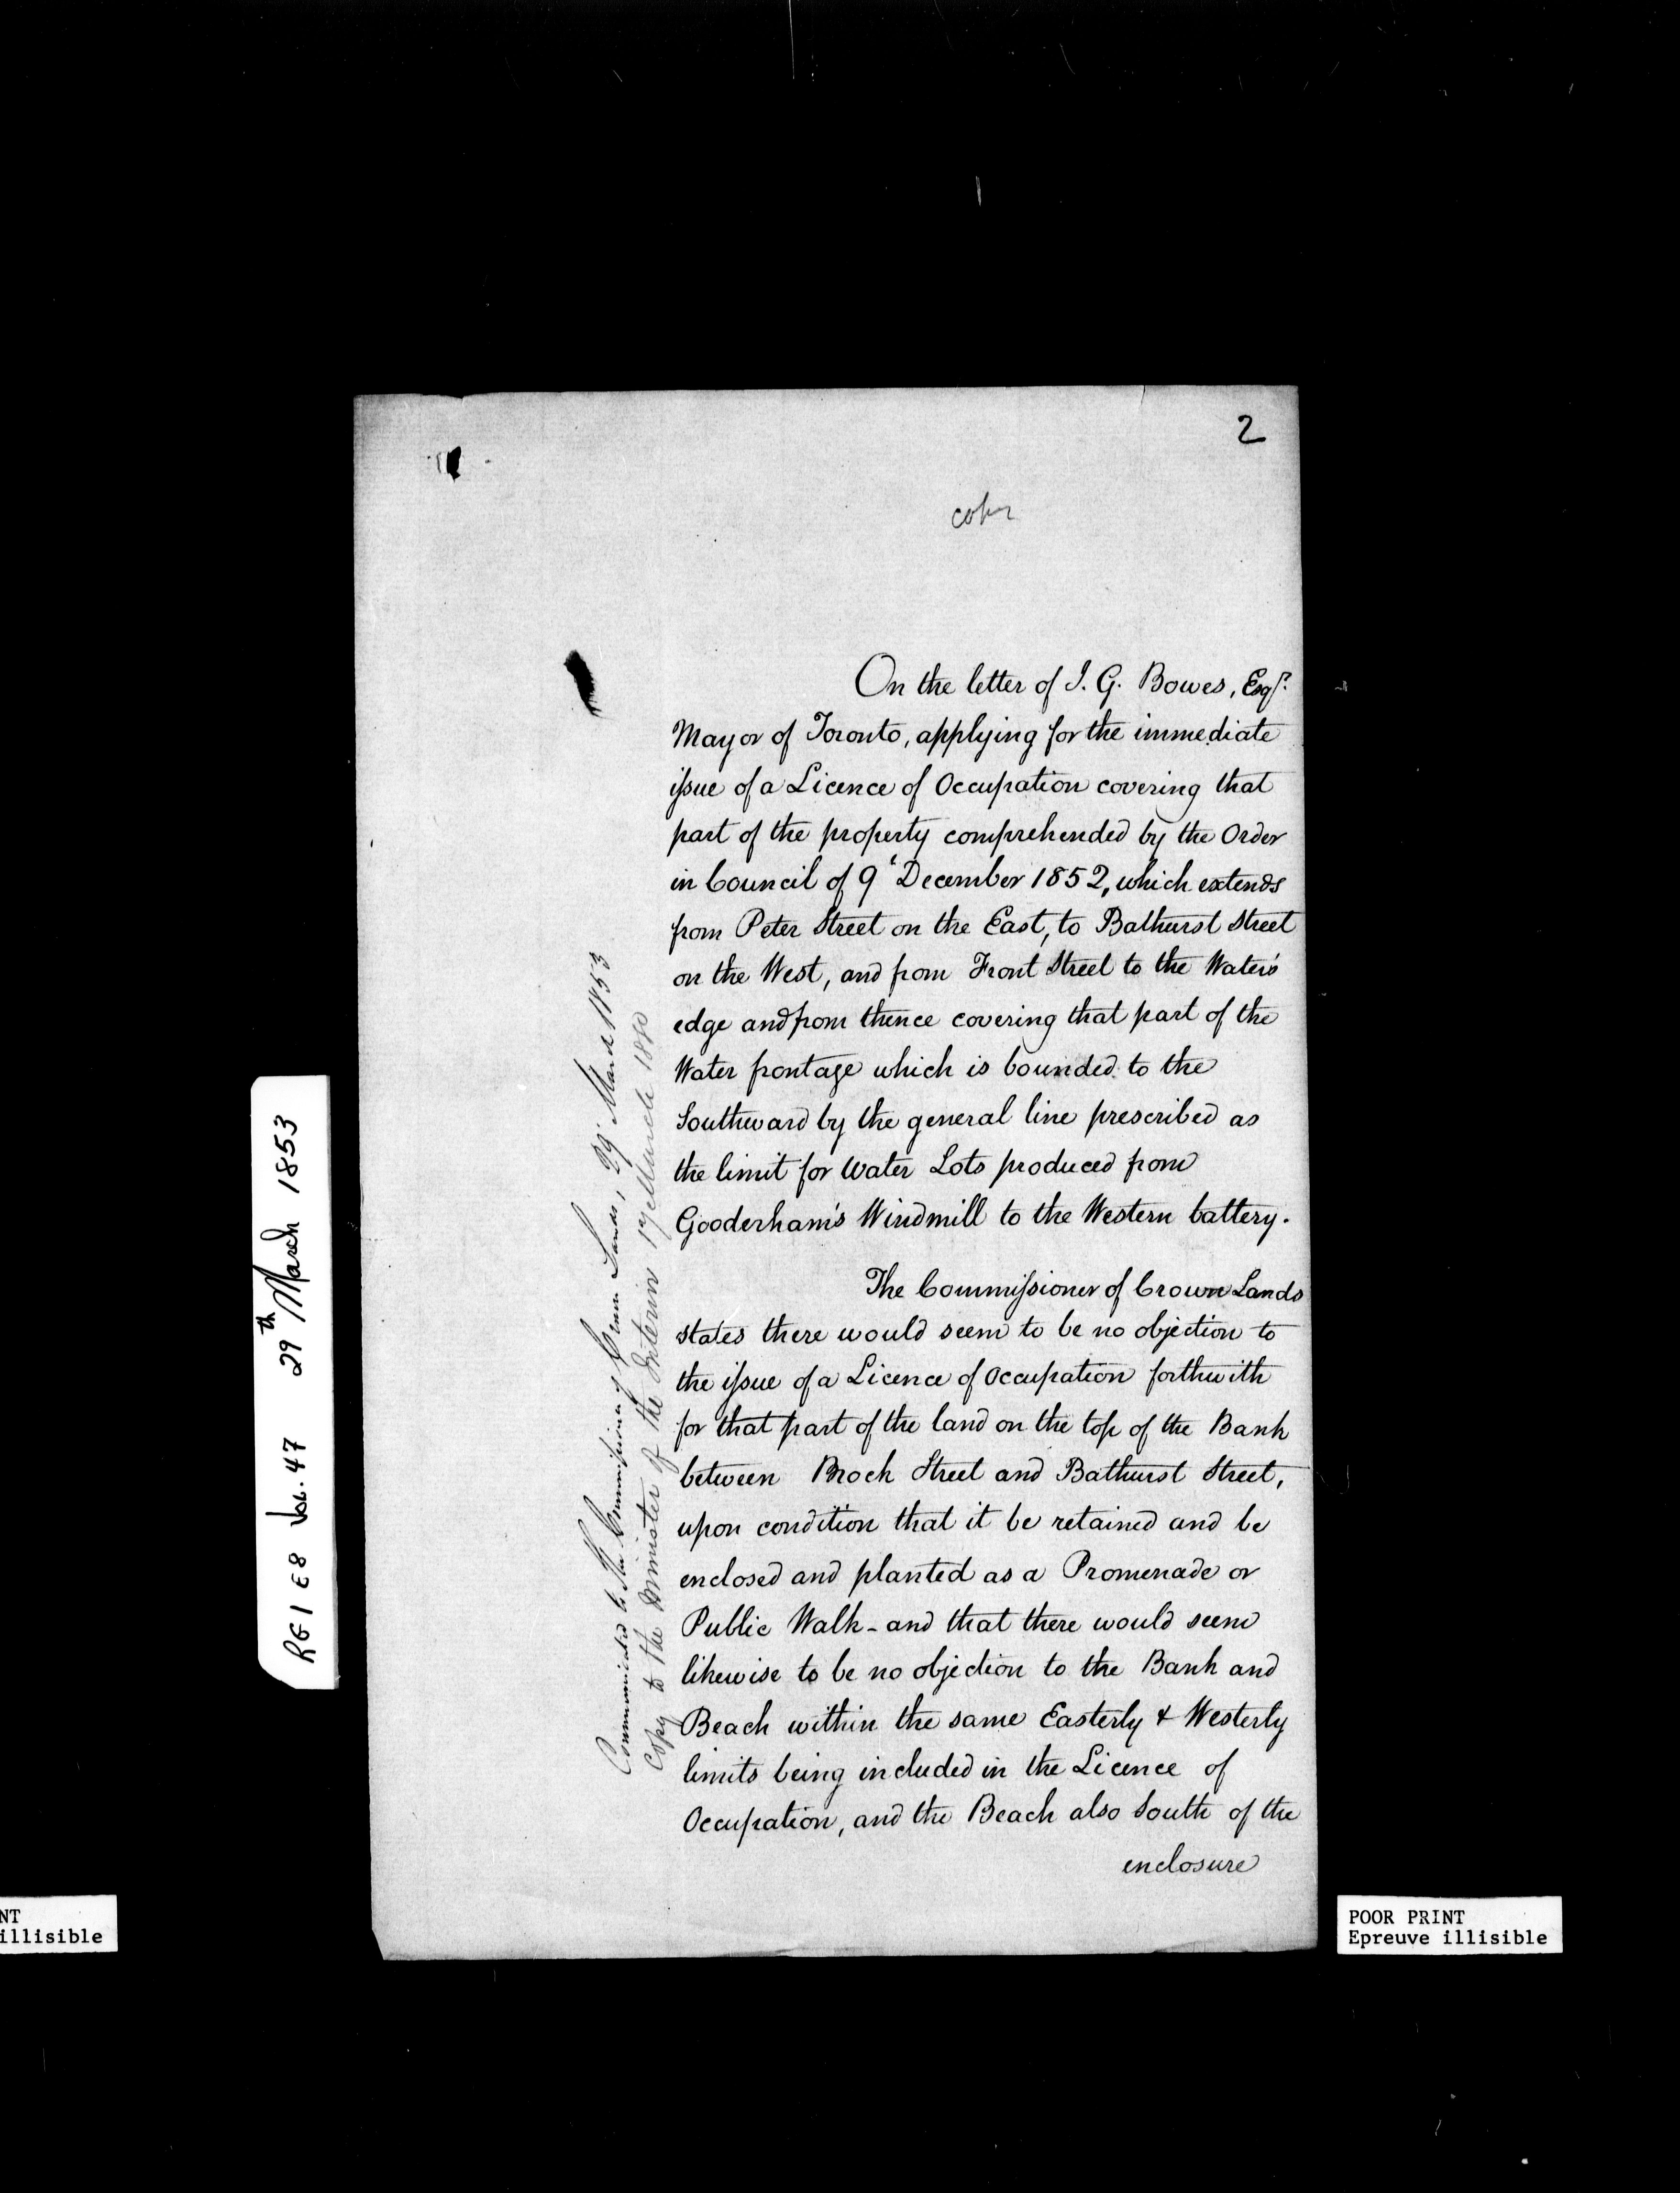 2
copy
On the letter of J. G. Bowes, Esqr.
Mayor of Toronto, applying for the immediate
issue of a Licence of Occupation covering that
part of the property comprehended by the Order
in Council of 9t December 1852, which extends
from Peter Street on the East, to Bathurst Street
on the West, and from Front Street to the Water's
edge and from thence covering that part of the
Water frontage which is bounded to the
Southward by the general line prescribed as
the limit for Water Lots produced from
Gooderham's Windmill to the Western battery.
The Commissioner of Crown Lands
states there would seem to be no objection to
the issue of a Licence of Occupation forthwith
for that part of the land on the top of the Bank
between Brock Street and Bathurst Street,
upon condition that it be retained and be
enclosed and planted as a Promenade or
Public Walk - and that there would seem
likewise to be no objection to the Bank and
Beach within the same Easterly & Westerly
limits being included in the Licence of
Occupation, and the Beach also South of the
enclosure
Communicated to the Commissioner of Crown Lands, 29 March 1853
Copy to the Minister of the Interior 17 March 1880
RG1 E8 Vol. 47 29th March 1853
NT
illisible
POOR PRINT
Epreuve illisible